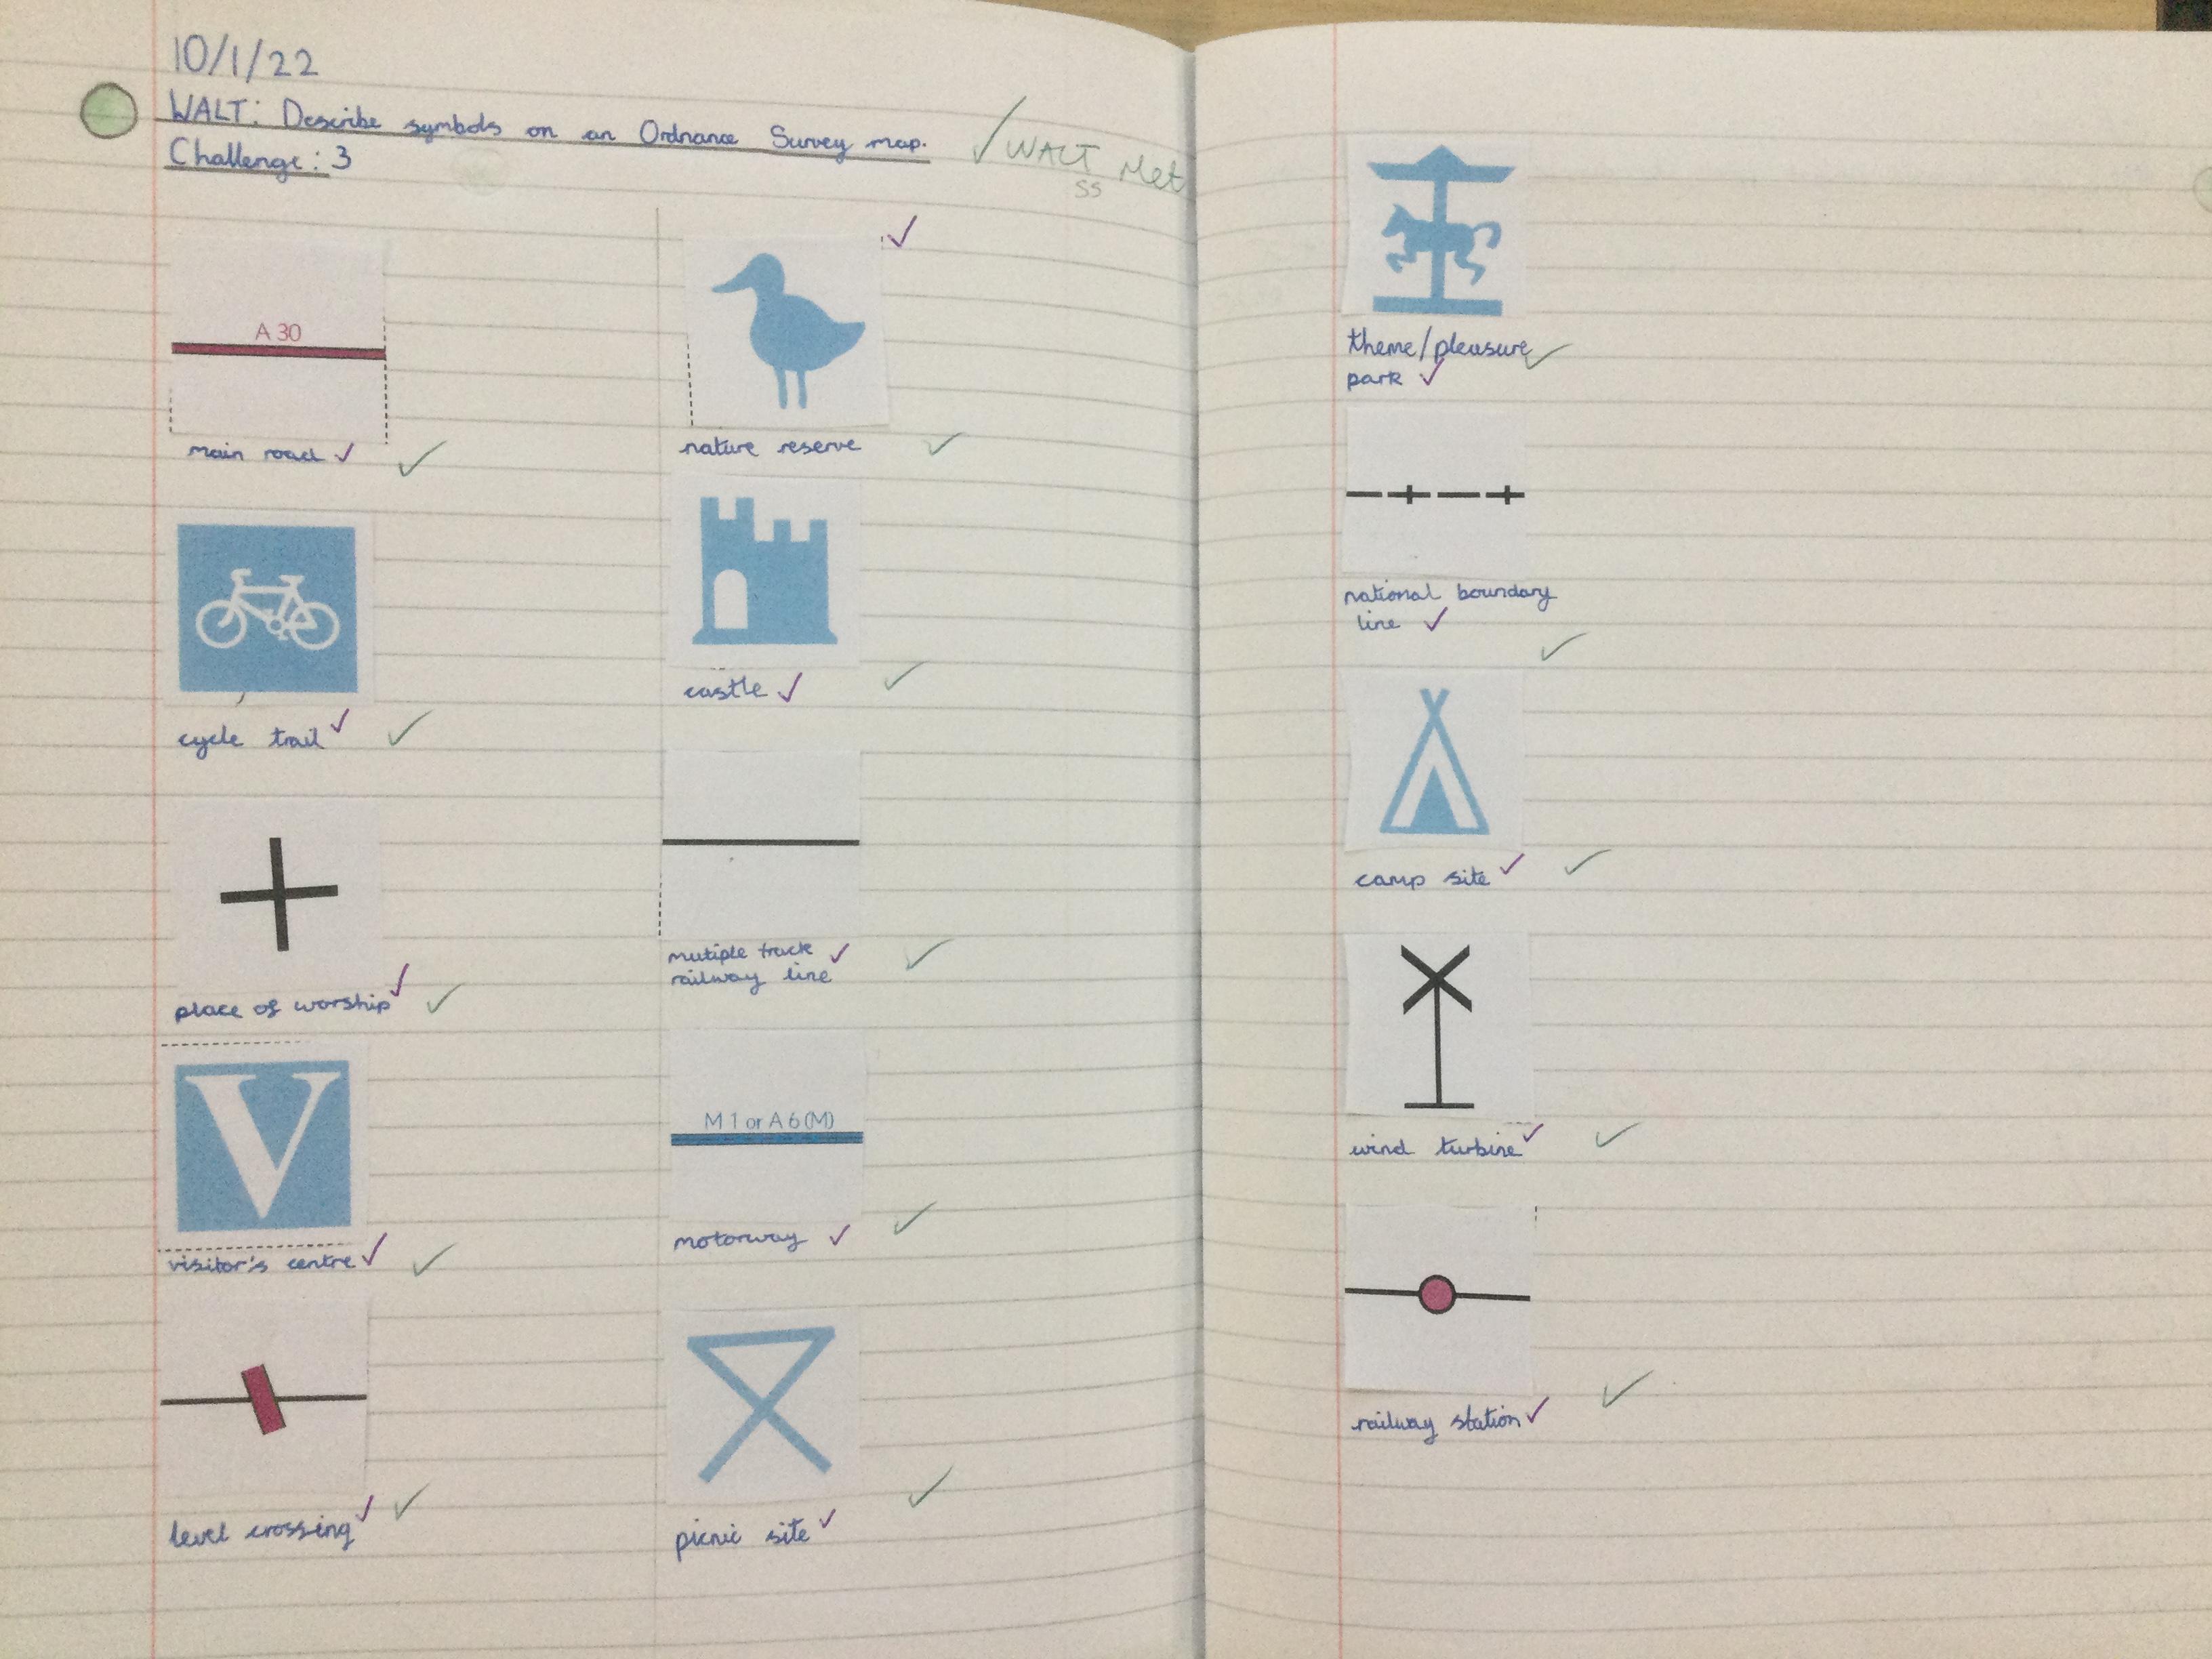 10/1/22
WALT: Describe symbols on an Ordnance Survey map.
WALT Met
SS
Challenge: 3
A 30
main road
cycle trail
place of worship
V
visitor's centre
level crossing
nature reserve
castle
mutiple track
railway line
M 1 or A 6 (M)
motorway
picnic site
theme/pleasure
park
national boundary
line
camp site
wind turbine
railway station